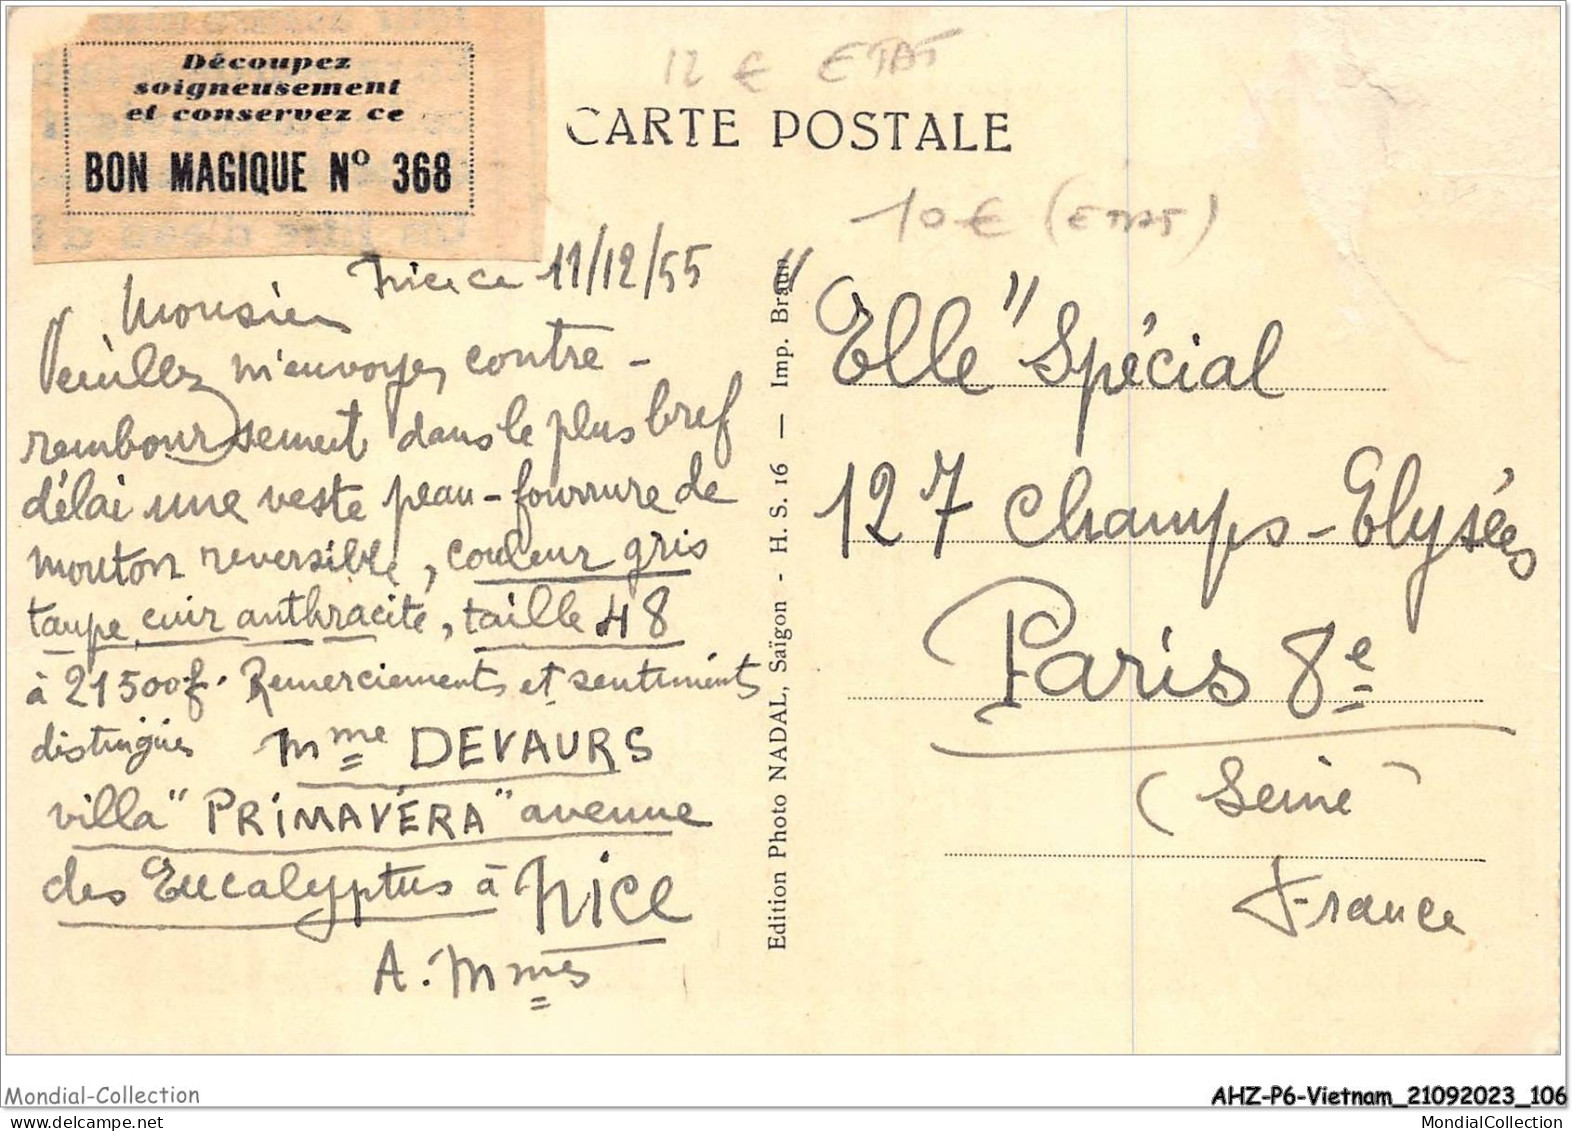 Découpez
soigneusement
et conservez ce
BON MAGIQUE Nº 368
12 € ETAT
CARTE POSTALE
10 € (ETAT)
Nice ce 11/12/55
Monsieur
Veuillez m'envoyer contre-
remboursement dans le plus bref
délai une veste peau-fourrure de
mouton reversible, couleur gris
taupe, cuir anthracite, taille 48
à 21500f. Remerciements et sentiments
distingués Mme DEVAURS
villa "PRIMAVÉRA" avenue
des Eucalyptus à Nice
A. Mmes
Edition Photo NADAL, Saïgon - H. S. 16 — Imp. Braun
"Elle" Spécial
127 Champs-Elysées
Paris 8e
(Seine)
France
Mondial-Collection
AHZ-P6-Vietnam_21092023_106
MondialCollection